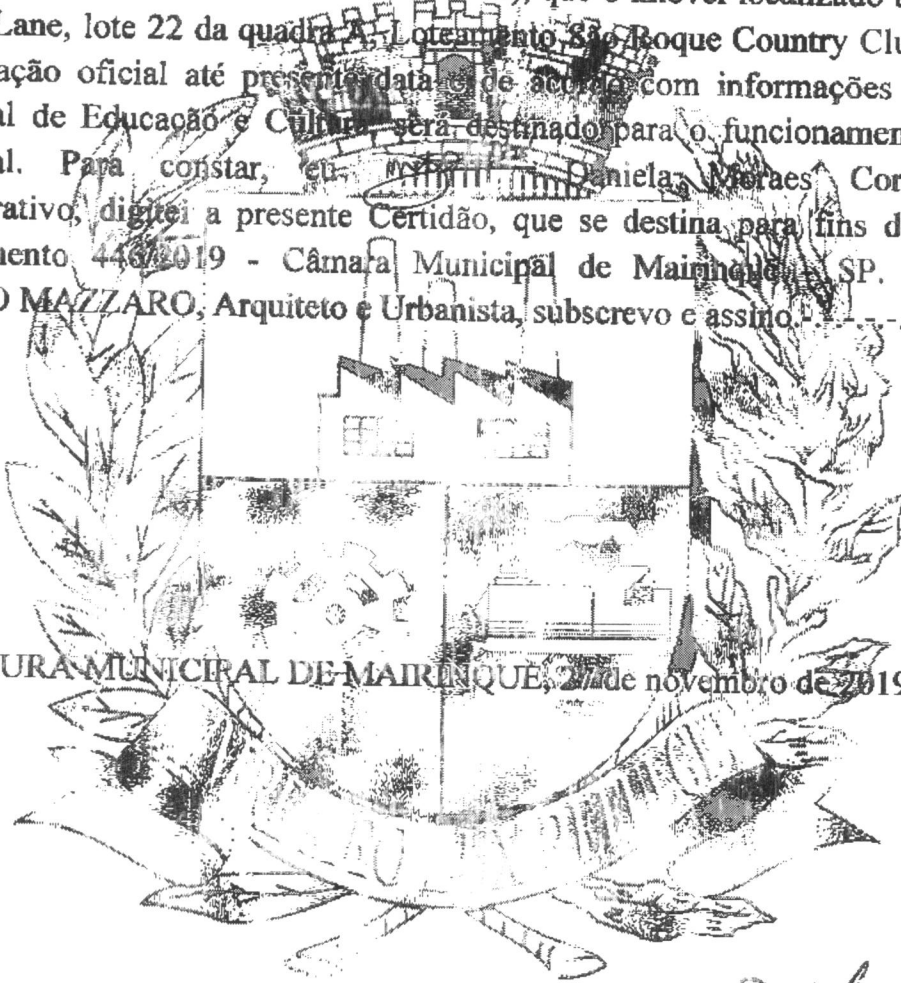 que o imóvel localizado
Lane, lote 22 da quadra A, Loteamento São Roque Country Clu
ação oficial até presente data e de acordo com informações
al de Educação e Cultura, será destinado para o funcionamen
al. Para constar, eu Daniela Moraes Cor
rativo, digitei a presente Certidão, que se destina para fins d
mento 446/2019 - Câmara Municipal de Mairinque - SP.
O MAZZARO, Arquiteto e Urbanista, subscrevo e assino.-.-.-.-.
URA MUNICIPAL DE MAIRINQUE, 27 de novembro de 2019